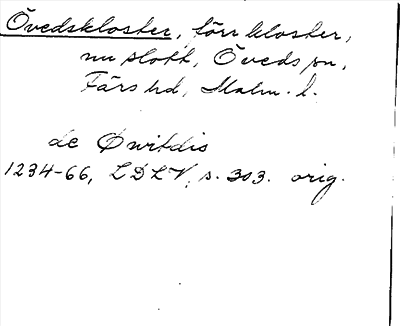 Övedskloster, förr kloster,
nu slott, Öveds sn,
Färs hd, Malm. l.
de Øwitdis
1234-66, LDLV, s. 303. orig.